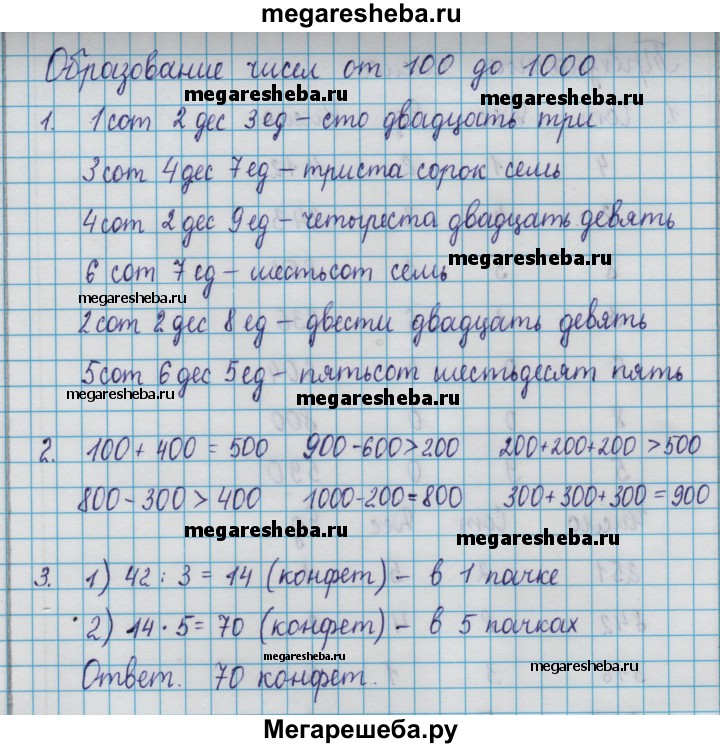 megaresheba.ru
Образование чисел от 100 до 1000
megaresheba.ru megaresheba.ru
1. 1 сот 2 дес 3 ед – сто двадцать три
3 сот 4 дес 7 ед – триста сорок семь
4 сот 2 дес 9 ед – четыреста двадцать девять
6 сот 7 ед – шестьсот семь megaresheba.ru
megaresheba.ru
2 сот 2 дес 8 ед – двести двадцать девять
5 сот 6 дес 5 ед – пятьсот шестьдесят пять
megaresheba.ru megaresheba.ru
2. 100 + 400 = 500 900 - 600 > 200 200 + 200 + 200 > 500
800 - 300 > 400 1000 - 200 = 800 300 + 300 + 300 = 900
megaresheba.ru megaresheba.ru
3. 1) 42 : 3 = 14 (конфет) – в 1 пачке
2) 14 · 5 = 70 (конфет) – в 5 пачках
megaresheba.ru megaresheba.ru
Ответ. 70 конфет.
Мегарешеба.ру